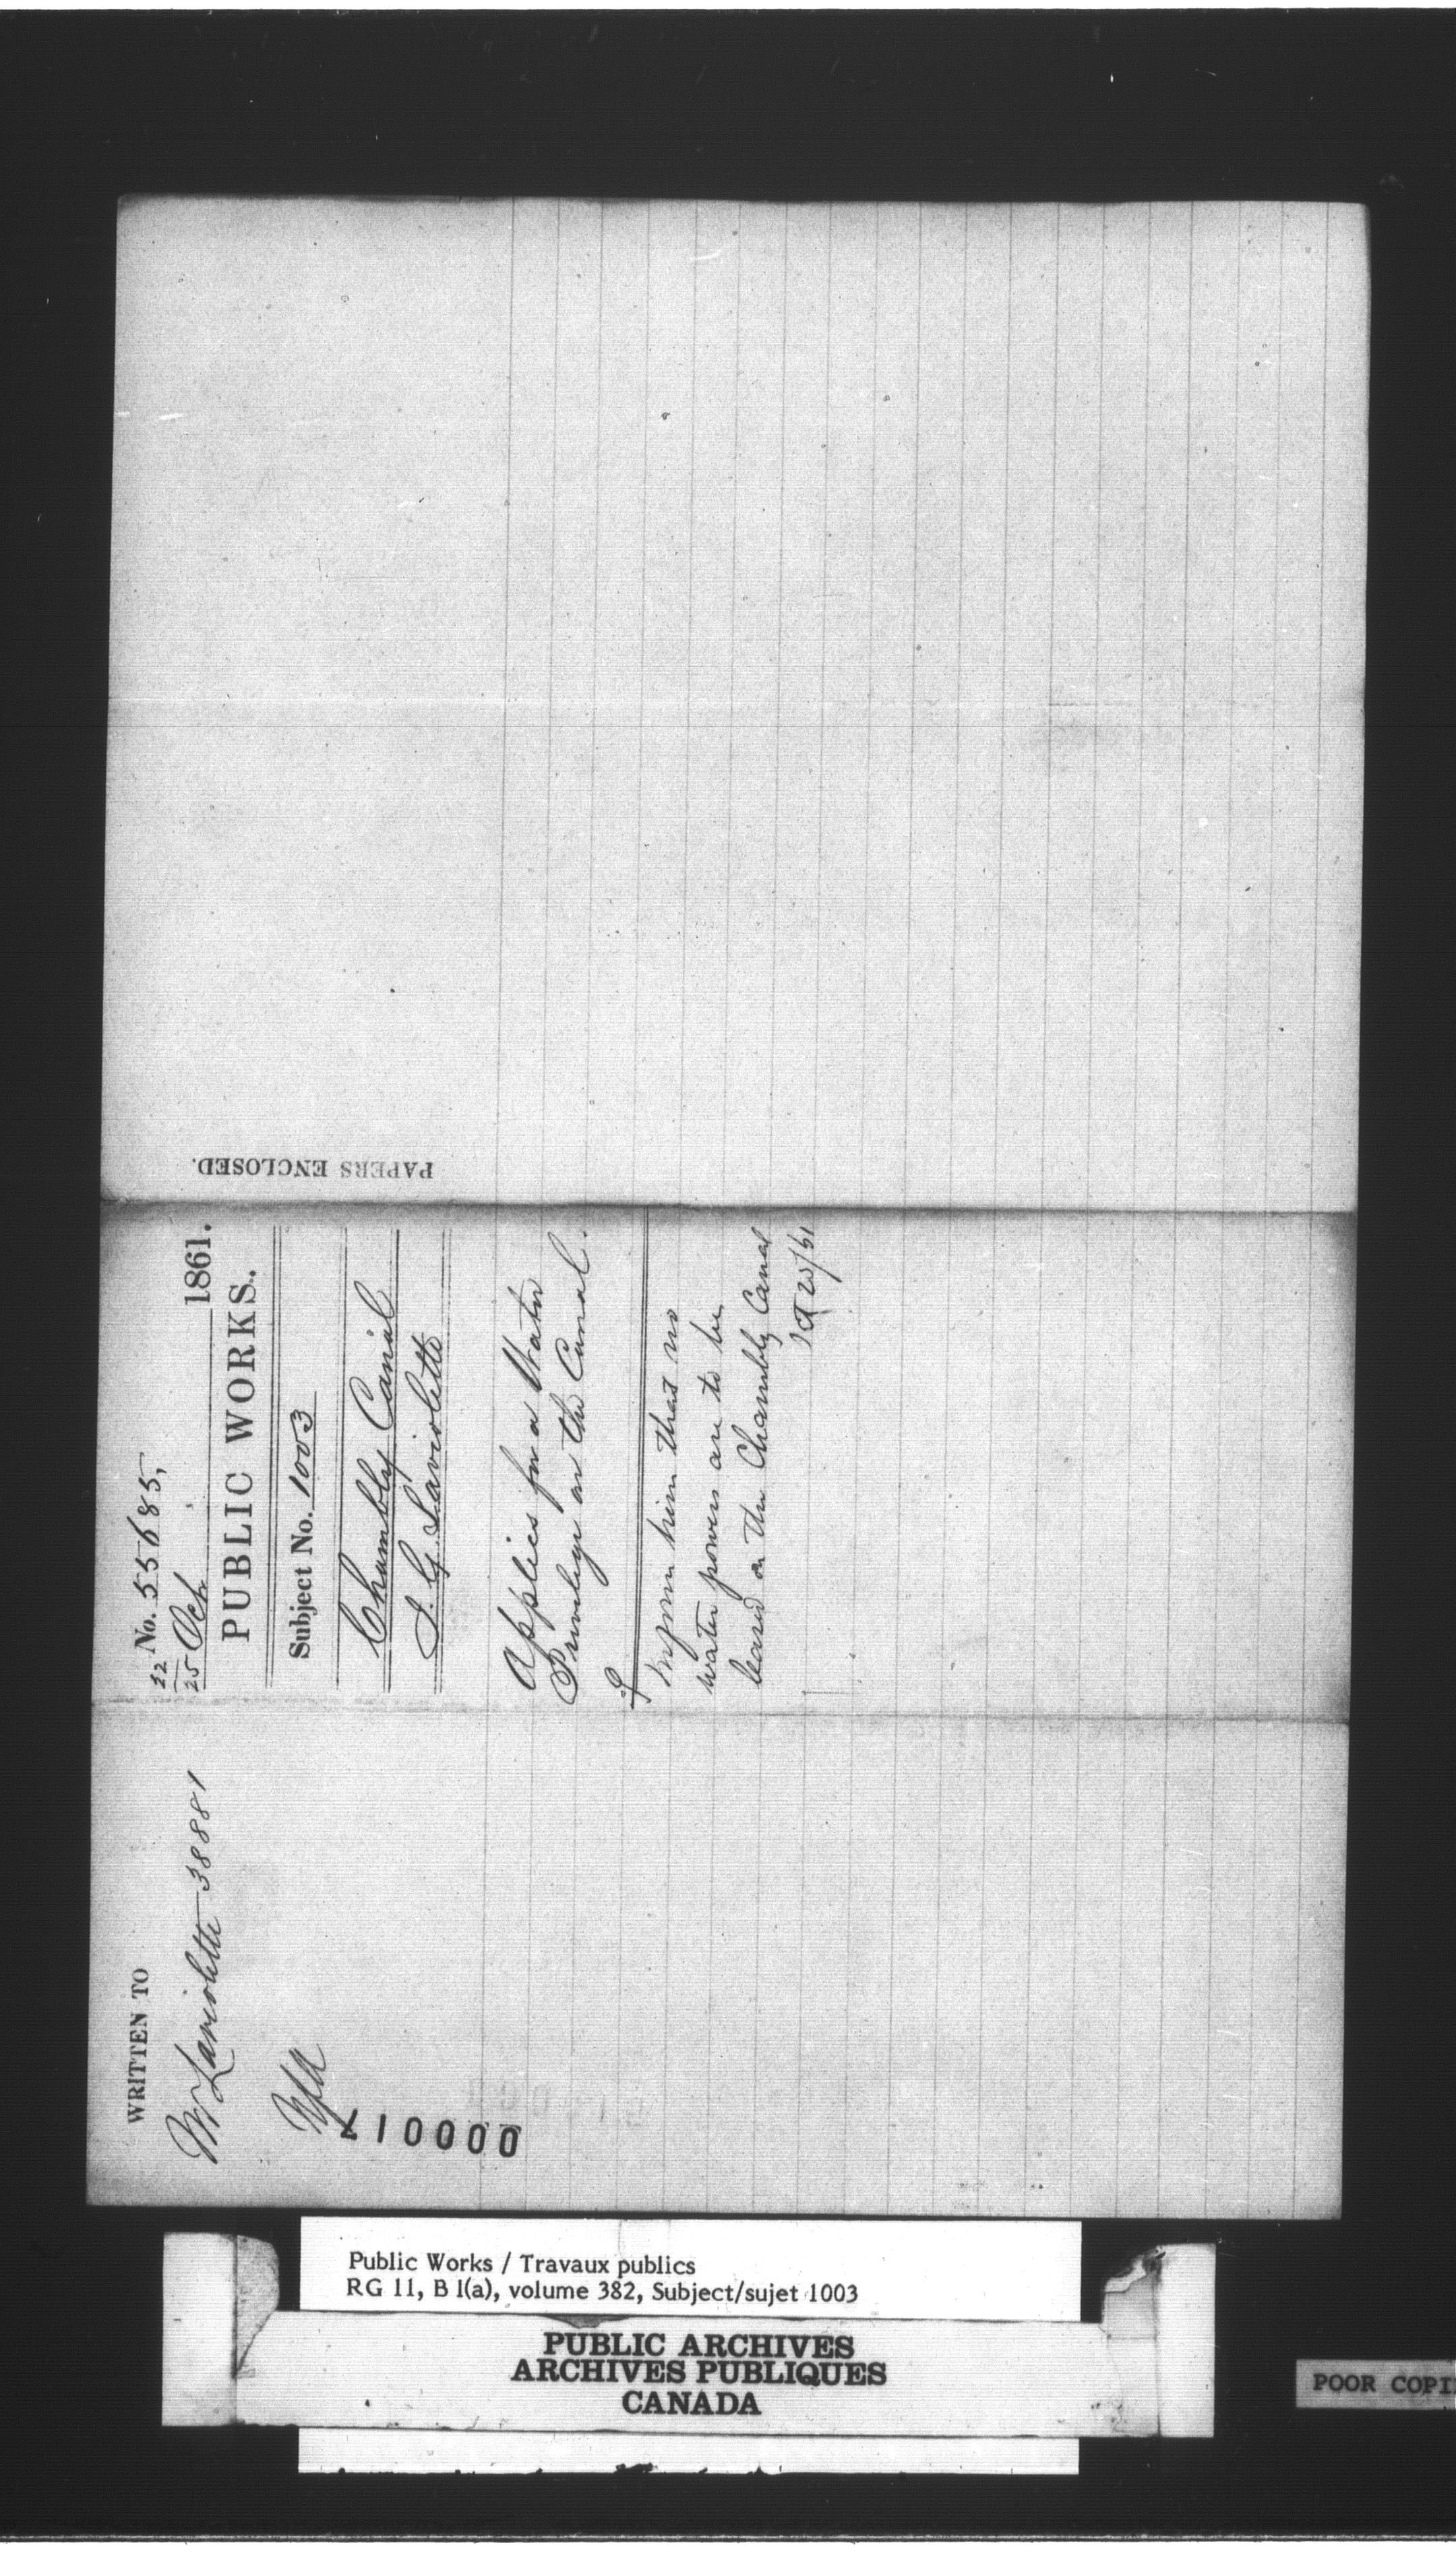 PAPERS ENCLOSED.
No. 55685,
22
25 Oct 1861.
PUBLIC WORKS.
Subject No. 1003
Chambly Canal
L. G. Laviolette
Applies for a Water
Privilege on the Canal.
Inform him that no
water powers are to be
leased on the Chambly Canal
WRITTEN TO
Mr Laviolette 38881
Public Works / Travaux publics
RG 11, B 1(a), volume 382, Subject/sujet 1003
PUBLIC ARCHIVES
ARCHIVES PUBLIQUES
CANADA
POOR COPI